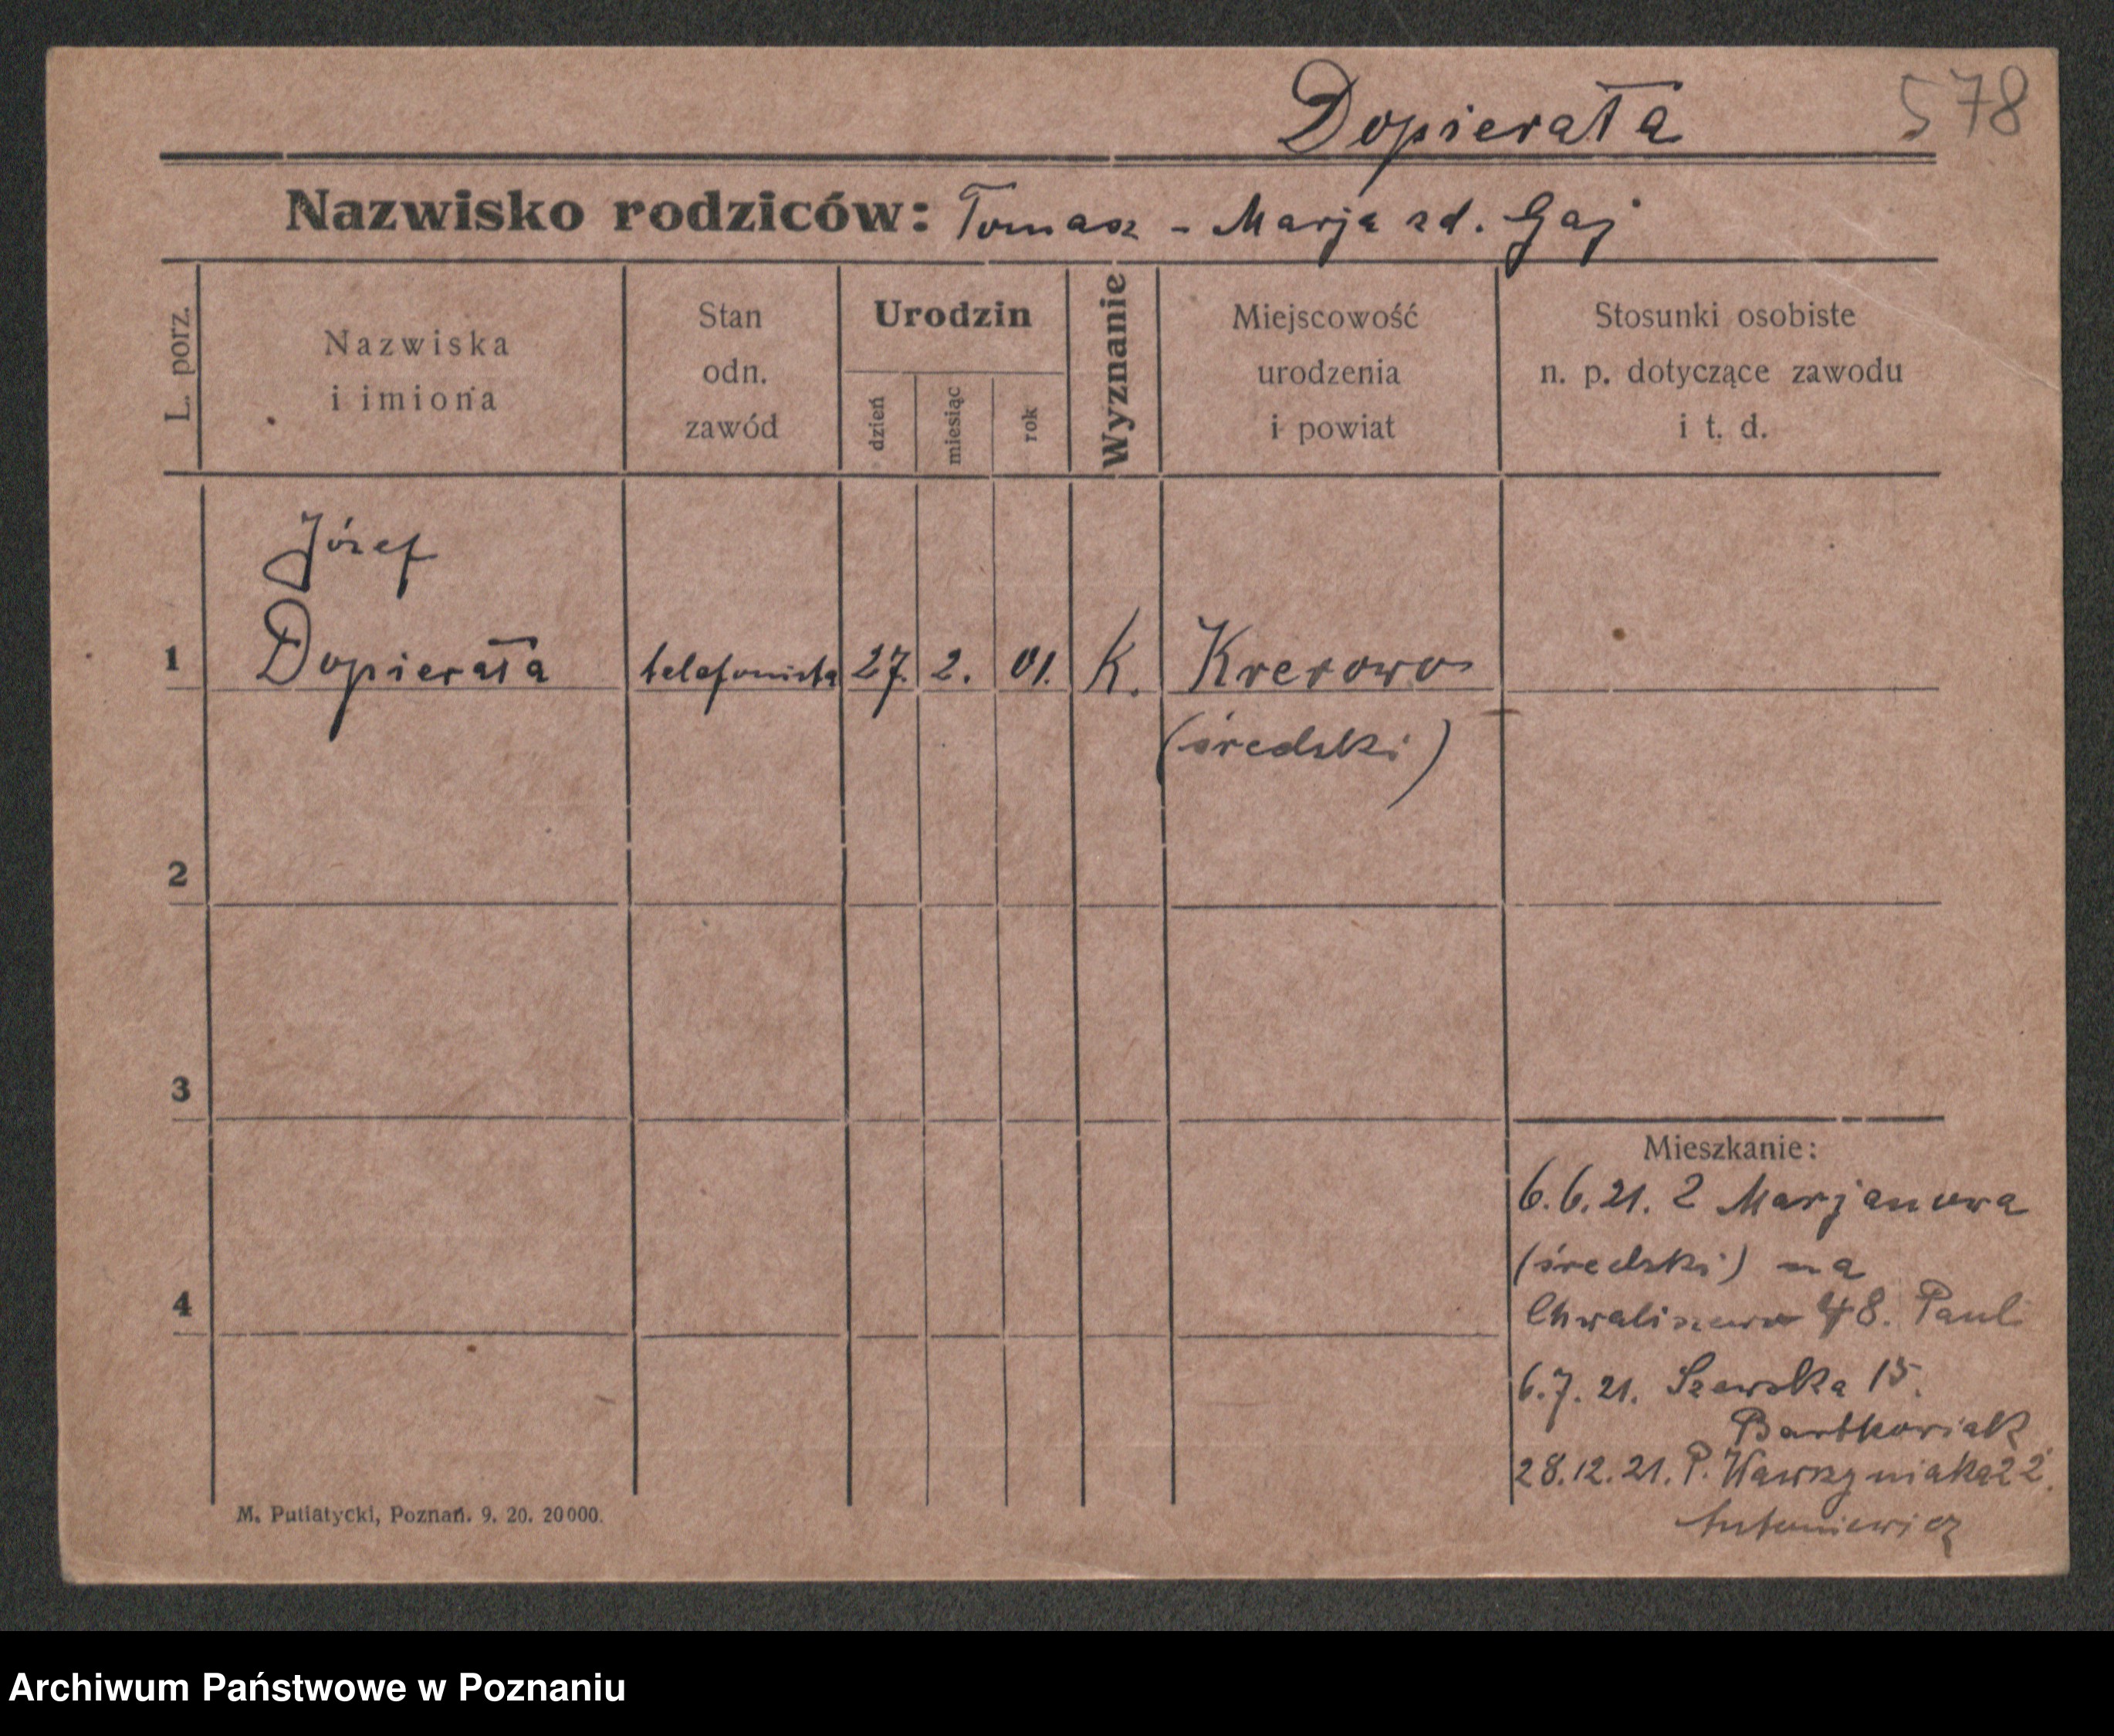 Dopierała 578
Nazwisko rodziców: Tomasz - Marja zd. Gaj
L. porz.
Nazwiska
i imiona
Stan
odn.
zawód
Urodzin
dzień
miesiąc
rok
Wyznanie
Miejscowość
urodzenia
i powiat
Stosunki osobiste
n. p. dotyczące zawodu
i t. d.
Józef
1 Dopierała telefonista 27. 2. 01. K. Krerowo
(średzki)
2
3
4
Mieszkanie:
6.6.21. z Marjanowa
(średzki) na
Chwaliszewo 48. Paul
6.7.21. Szewska 15.
Bartkowiak
28.12.21. P. Wawrzyniaka 22.
Antoniewicz
M. Putiatycki, Poznań. 9. 20. 20000.
Archiwum Państwowe w Poznaniu